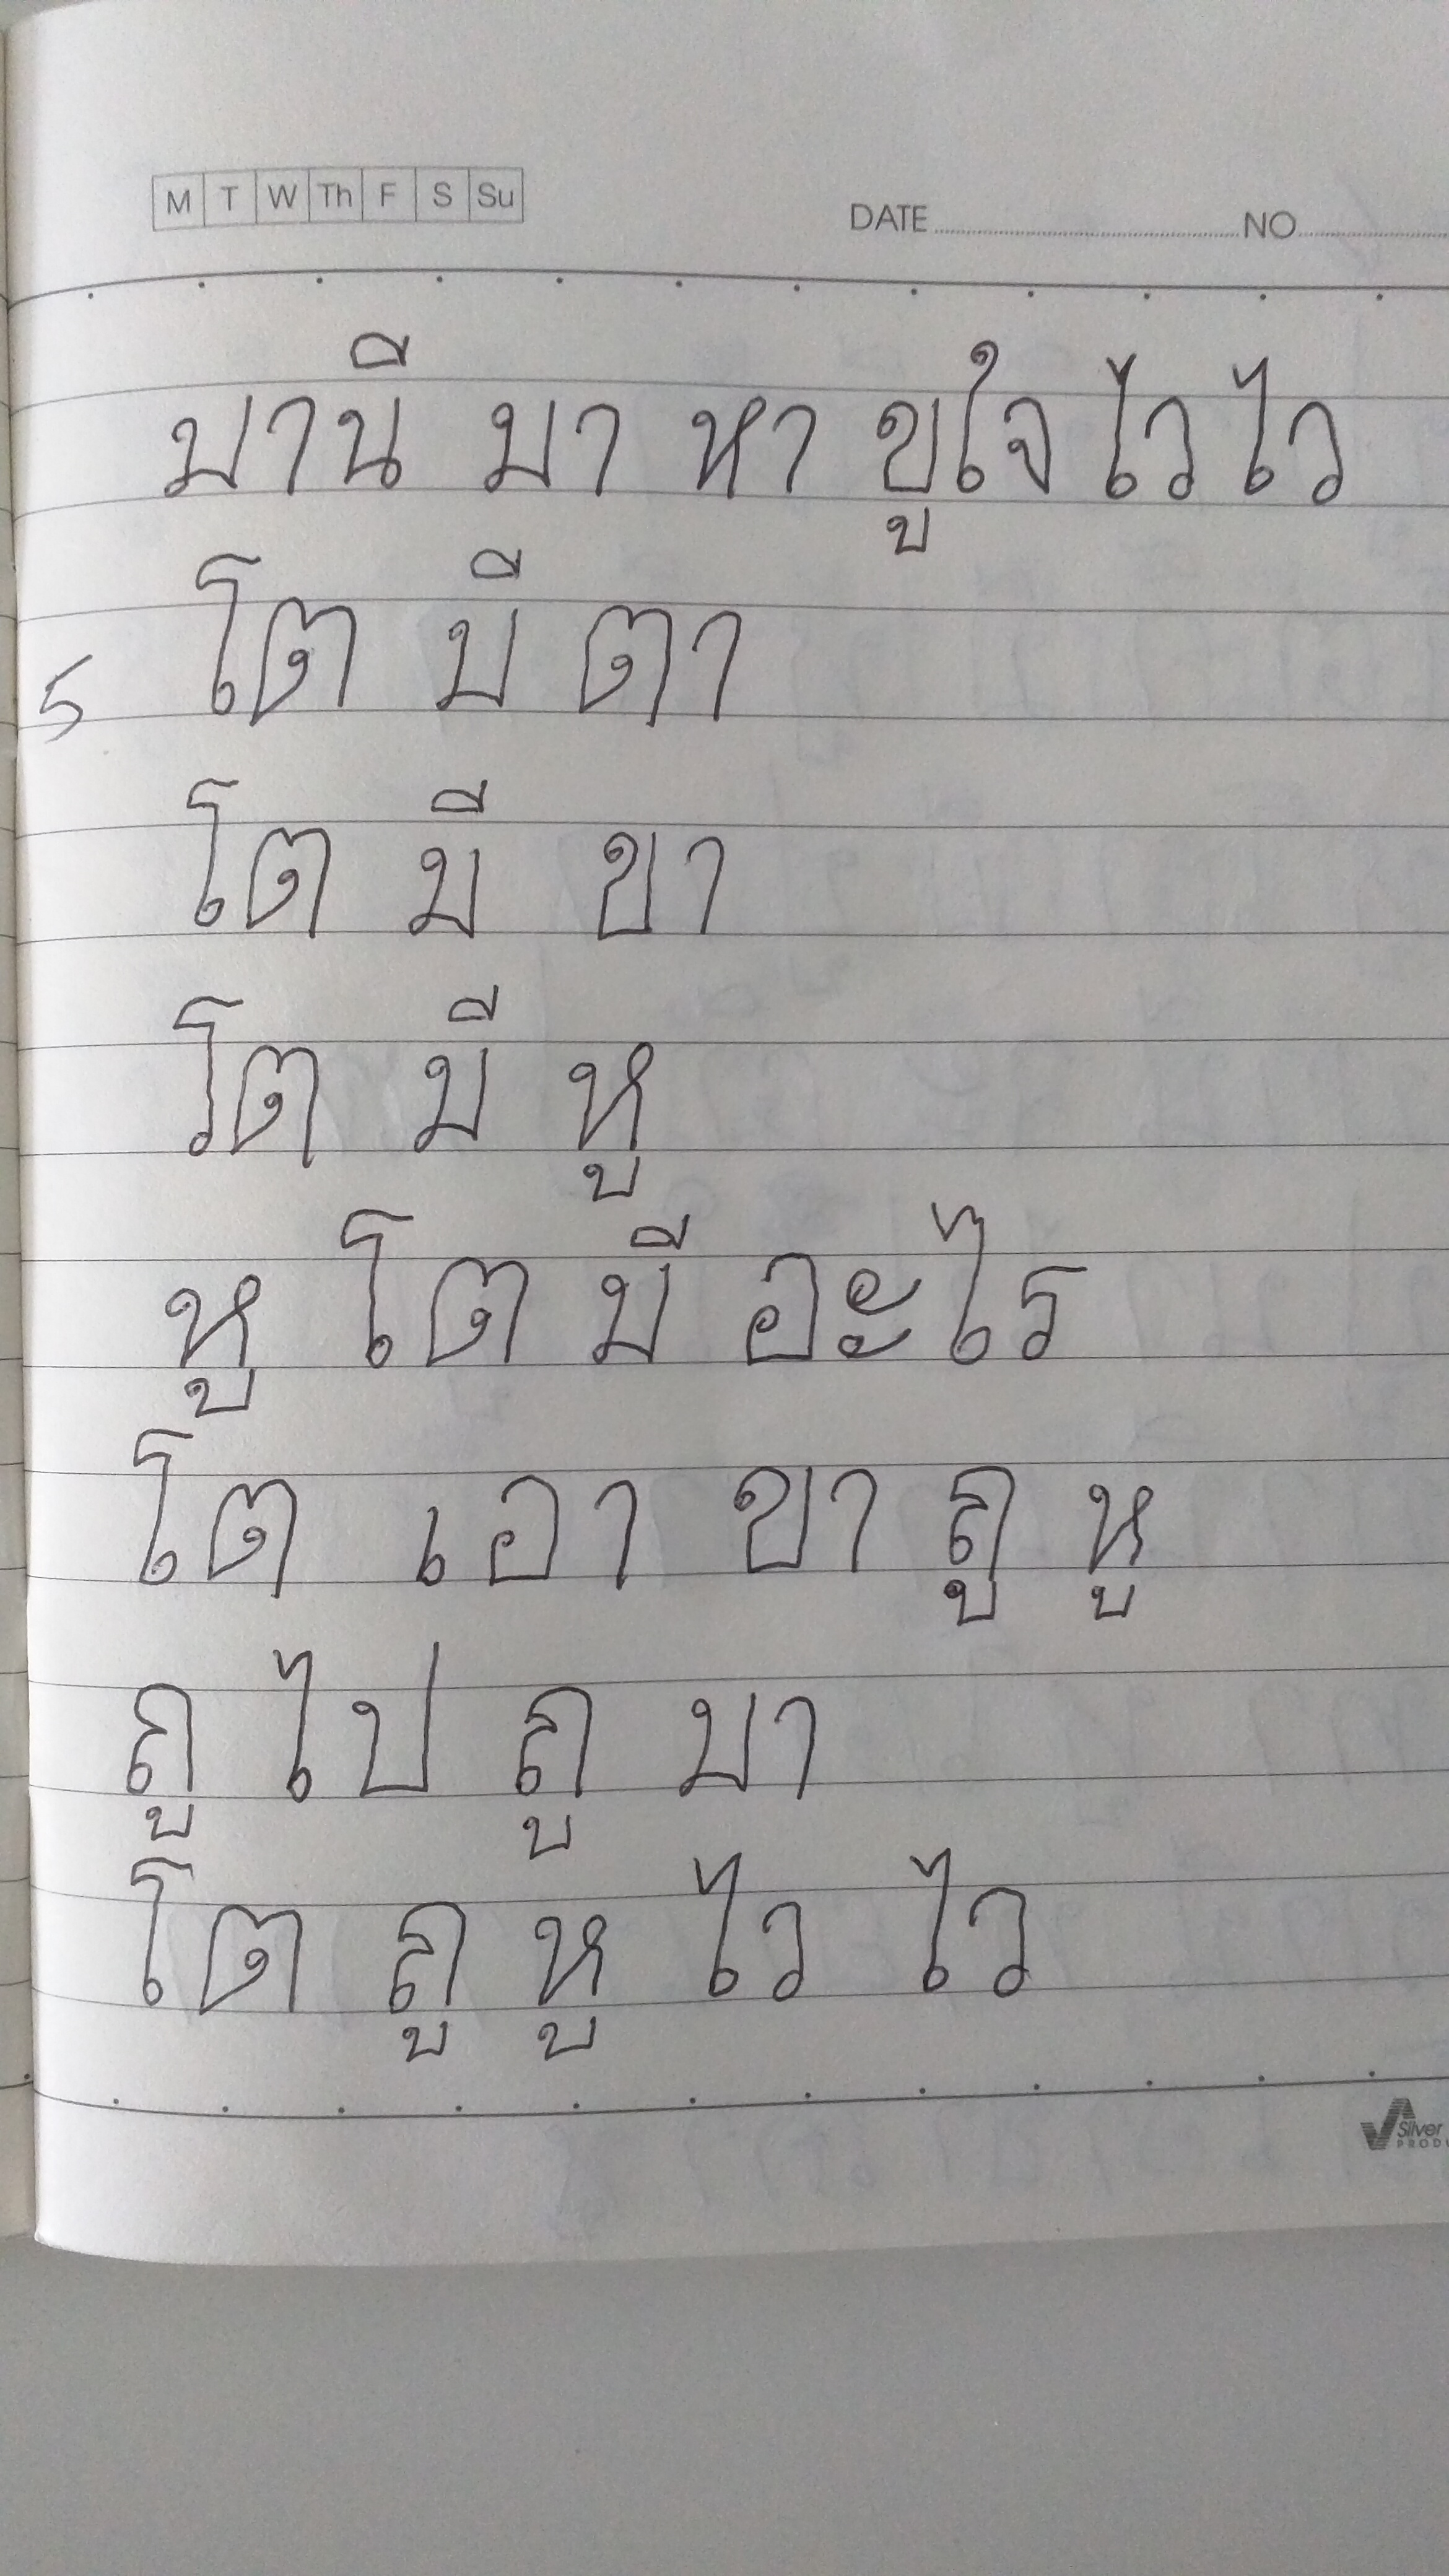 M T W Th F S Su
DATE NO
มานี มา หา ขูใจ ไว ไว
5 โต มี ตา
โต มี ขา
โต มี หู
หู โต มี อะไร
โต เอา ขา ถู หู
ถู ไป ถู มา
โต ถู หู ไว ไว
Silver